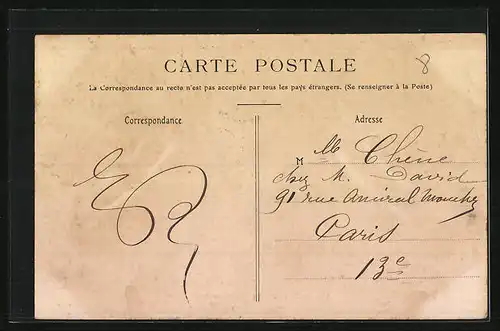 8
CARTE POSTALE
La Correspondance au recto n'est pas acceptée par tous les pays étrangers. (Se renseigner à la Poste)
Correspondance
Adresse
M Chêne
chez M. David
91 rue Amiral Mouchez
Paris
13e